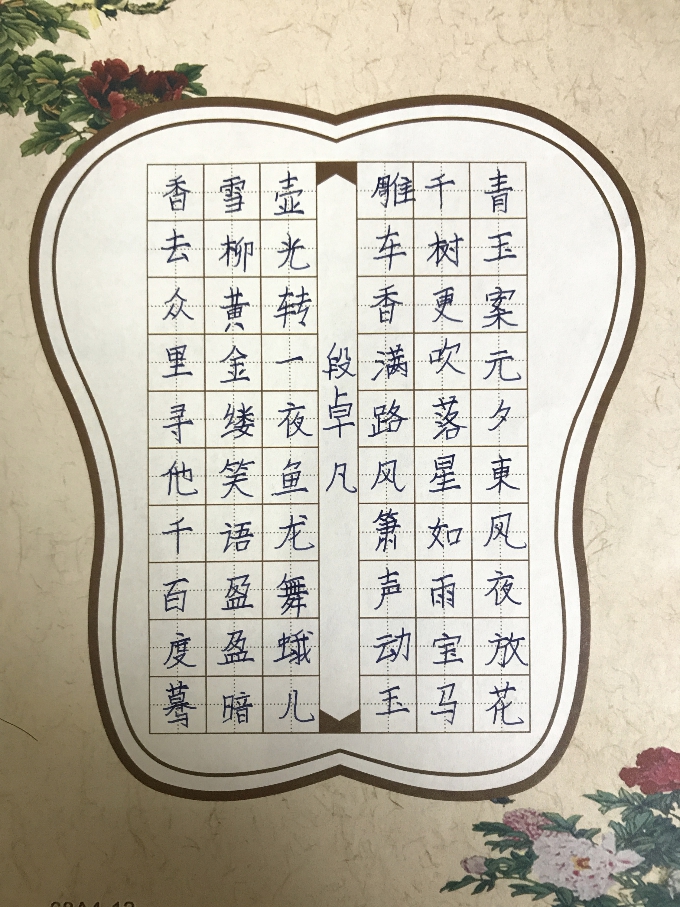 青玉案元夕東风夜放花
千树更吹落星如雨宝马
雕车香满路风箫声动玉
段卓凡
壶光转一夜鱼龙舞蛾儿
雪柳黄金缕笑语盈盈暗
香去众里寻他千百度蓦